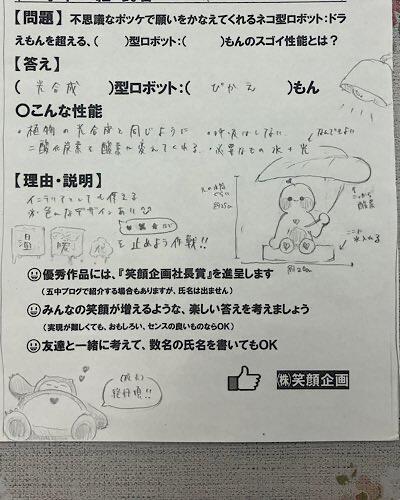 【問題】不思議なポッケで願いをかなえてくれるネコ型ロボット:ドラ
えもんを超える、(　　)型ロボット:(　　)もんのスゴイ性能とは?
【答え】
(光合成)型ロボット:(ぴかえ)もん
○こんな性能
・植物の光合成と同じように
二酸化炭素を酸素に変えてくれる
・呼吸はしない
・必要なもの 水+光
なんでもよい
【理由・説明】
インテリアとしても使える
色んなデザインあり
温
を止めよう作戦!!
酸素
水入れる
優秀作品には、『笑顔企画社長賞』を進呈します
(五中ブログで紹介する場合もありますが、氏名は出ません)
みんなの笑顔が増えるような、楽しい答えを考えましょう
(実現が難しくても、おもしろい、センスの良いものならOK)
友達と一緒に考えて、数名の氏名を書いてもOK
㈱笑顔企画